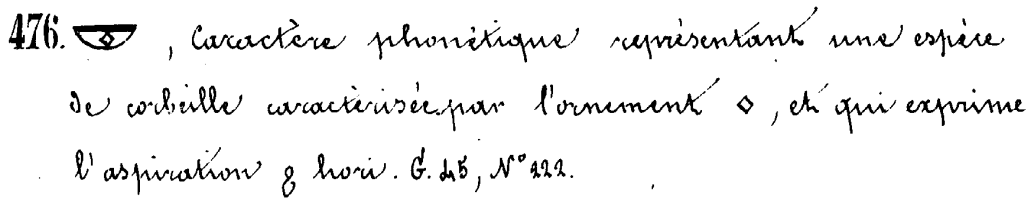 476. 𓎱, Caractère phonétique représentant une espèce
de corbeille caractérisée par l'ornement ⋄, et qui exprime
l'aspiration ϩ hori. G. 45, N° 222.